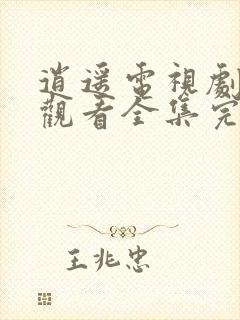 逍遥電視劇
觀看全集完
王兆忠